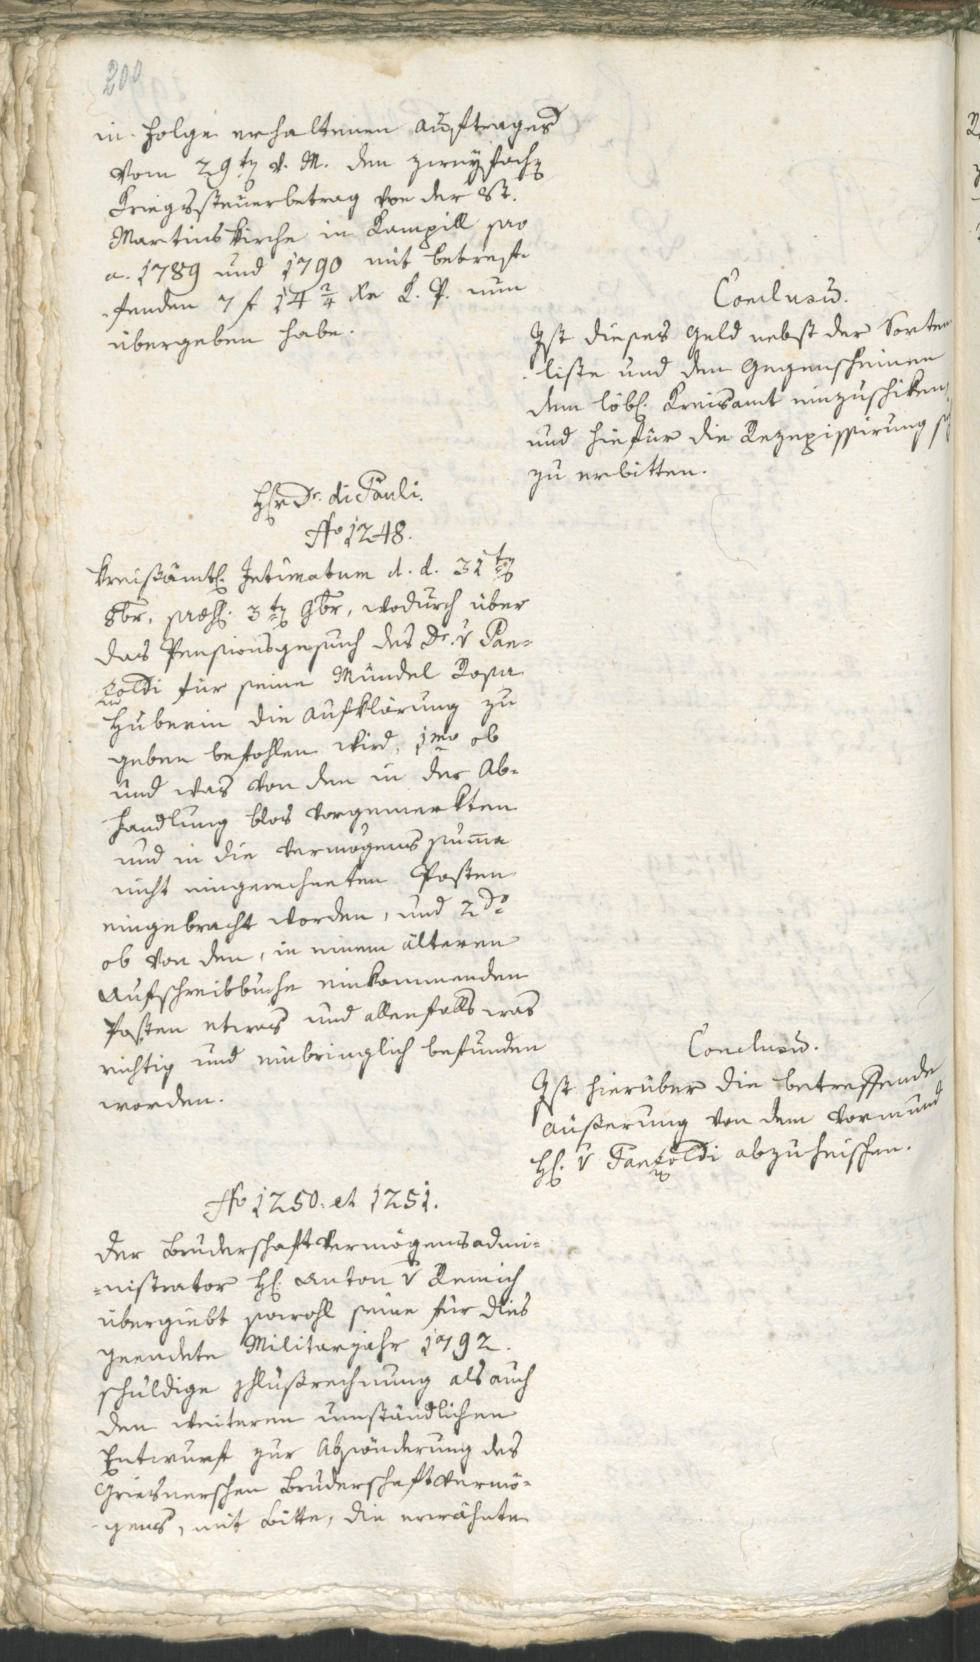 200
in Folge erhaltenen Auftrages
vom 29ten v. M. den zweyfachen
Kriegssteuerbetrag von der St.
Martins Kirche in Kampill pro
a. 1789 und 1790 mit betref-
fenden 7 f 14 2/4 Kr K. P. nun
übergeben habe.
Conclusum.
Ist dieses Geld nebst der Sorten
liste und den Gegenscheinen
dem löbl. Kreisamt einzuschiken,
und hiefür die Rezepissirung
zu erbitten.
Hr Dr. di Pauli.
No 1248.
Kreisämtl. Intimatum d. d. 31ten
8br, präs. 3ten 9br, wodurch über
das Pensionsgesuch des Dr. v Pan-
zoldi für seine Mündel Rosa
Huberin die Aufklärung zu
geben befohlen wird, 1mo ob
und was von den in der Ab-
handlung blos vorgemerkten
und in die Vermögens summa
nicht eingerechneten Posten
eingebracht worden, und 2do
ob von den, in einem älteren
Aufschreibbuche einkommenden
Posten etwas und allenfalls was
richtig und einbringlich befunden
worden.
Conclusum.
Ist hierüber die betreffende
Äußerung von dem Vormund
H. v Panzoldi abzuheischen.
No 1250. et 1251.
Der Bruderschaftvermögensadmi-
-nistrator H. Anton v Remich
übergiebt sowohl seine für dies
geendete Militarjahr 1792.
schuldige Schlußrechnung als auch
den weiteren umständlichen
Entwurf zur Absönderung des
Griesnerschen Bruderschaftvermö-
-gens, mit Bitte, die erwähnte